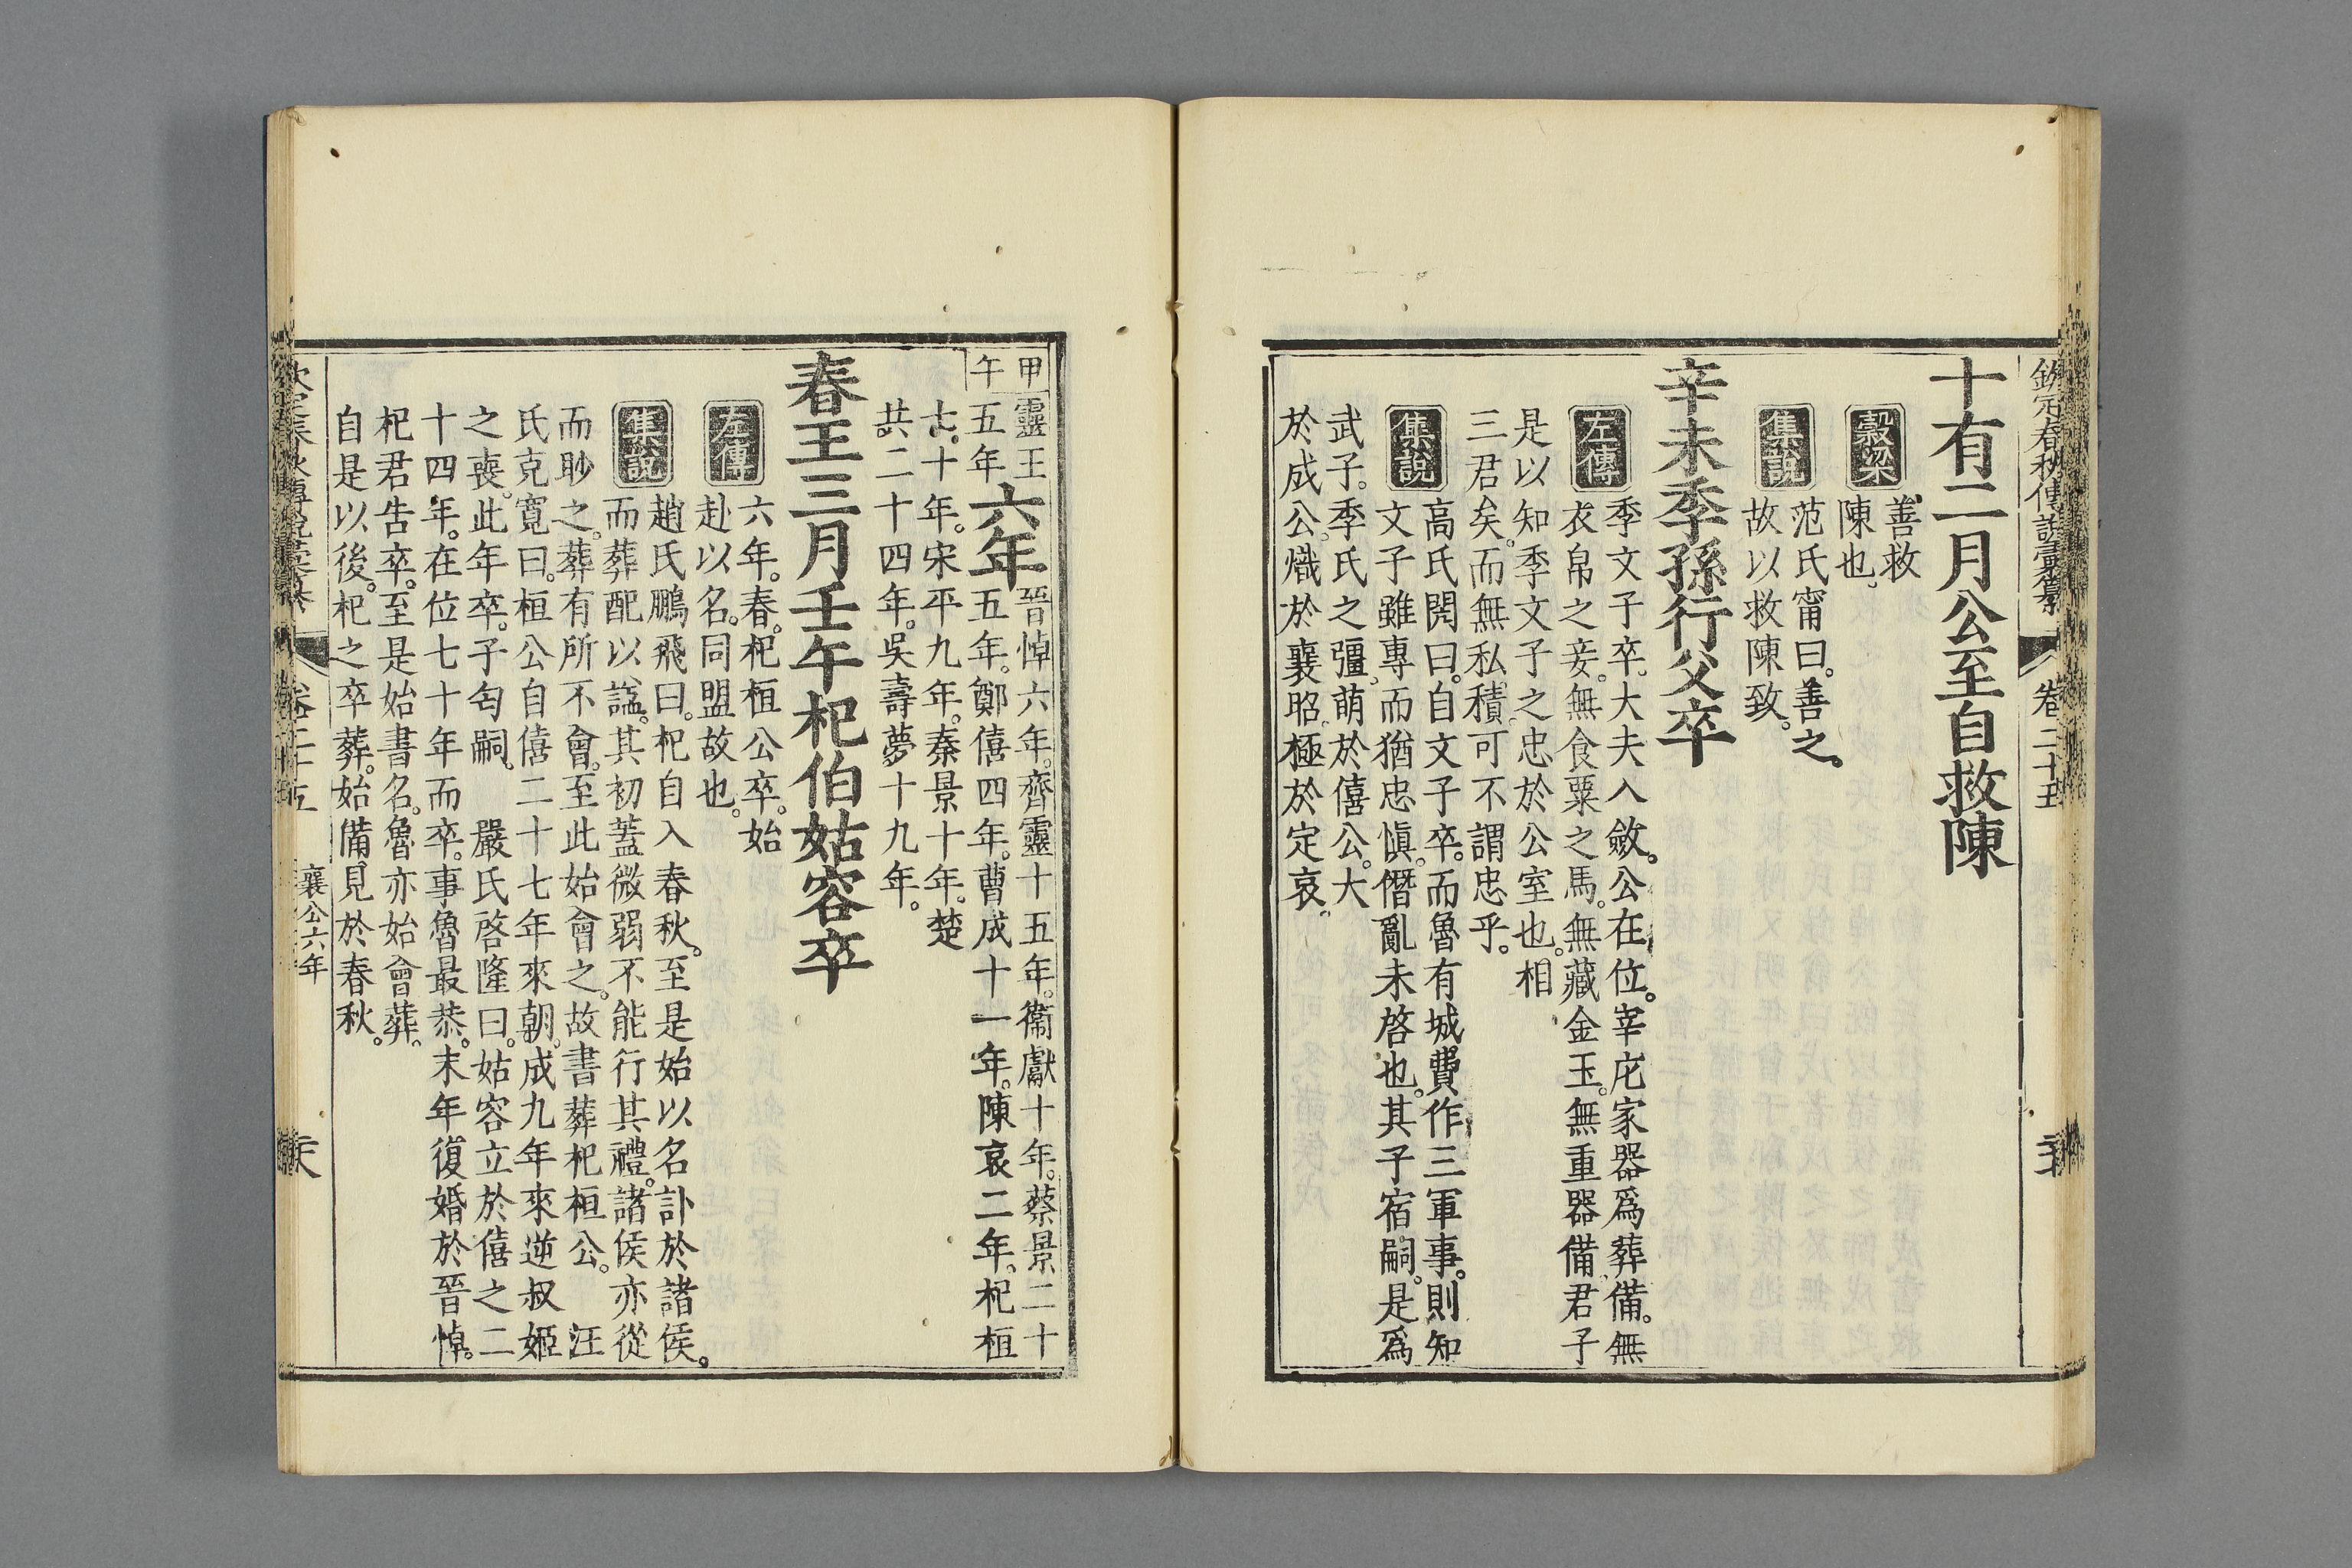 欽定春秋傳說彙纂 卷二十五
十有二月公至自救陳
穀梁 善救
陳也。
集說 范氏甯曰。善之。
故以救陳致。
辛未季孫行父卒
左傳 季文子卒。大夫入斂。公在位。宰庀家器爲葬備。無
衣帛之妾。無食粟之馬。無藏金玉。無重器備。君子
是以知季文子之忠於公室也。相
三君矣。而無私積。可不謂忠乎。
集說 高氏閌曰。自文子卒。而魯有城費作三軍事。則知
文子雖專而猶忠愼。僭亂未啓也。其子宿嗣。是爲
武子。季氏之彊。萌於僖公。大
於成公。熾於襄昭。極於定哀。
甲午 靈王
五年 六年 晉悼六年。齊靈十五年。衞獻十年。蔡景二十
五年。鄭僖四年。曹成十一年。陳哀二年。杞桓
七十年。宋平九年。秦景十年。楚
共二十四年。吳壽夢十九年。
春王三月壬午杞伯姑容卒
左傳 六年。春。杞桓公卒。始
赴以名。同盟故也。
集說 趙氏鵬飛曰。杞自入春秋。至是始以名訃於諸侯。
而葬配以諡。其初蓋微弱不能行其禮。諸侯亦從
而眇之。葬有所不會。至此始會之。故書葬杞桓公。 汪
氏克寬曰。桓公自僖二十七年來朝。成九年來逆叔姬
之喪。此年卒。子匄嗣。 嚴氏啓隆曰。姑容立於僖之二
十四年。在位七十年而卒。事魯最恭。末年復婚於晉悼。
杞君告卒。至是始書名。魯亦始會葬。
自是以後。杞之卒葬。始備見於春秋。
卷二十五 襄公六年